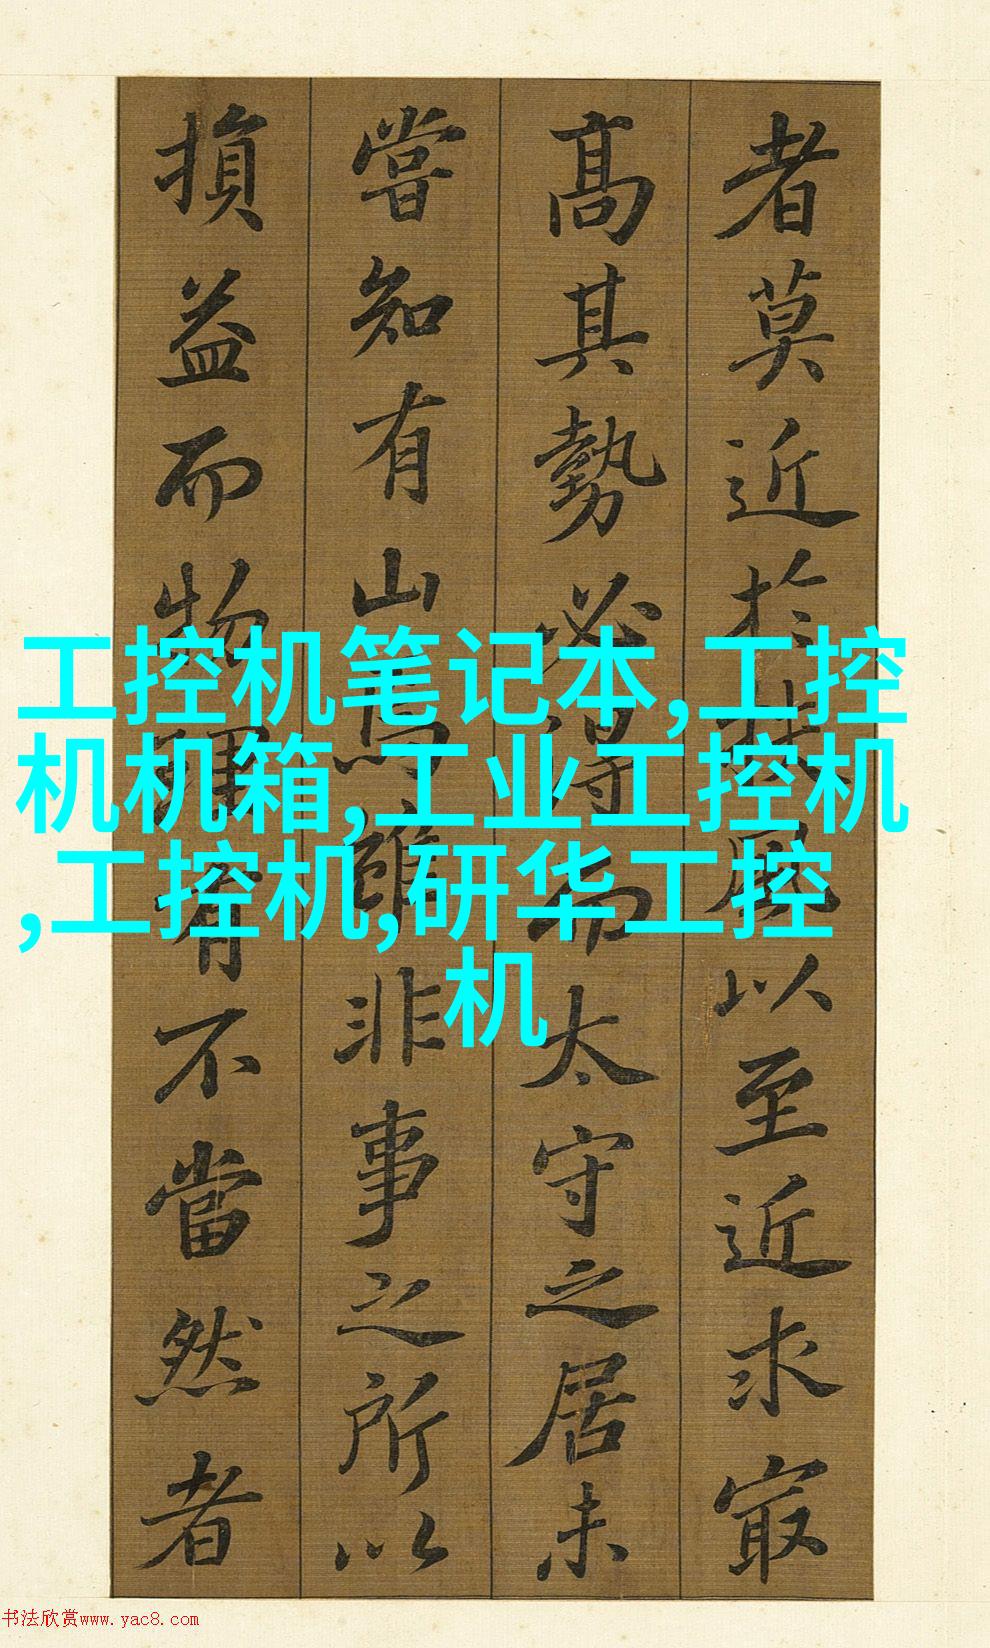 者莫近於扶風以至近求㝡
高其勢必得而太守之居未
嘗知有山焉雖非事之所以
損益而物理有不當然者
工控机笔记本,工控
机机箱,工业工控机
,工控机,研华工控
机
书法欣赏www.yac8.com